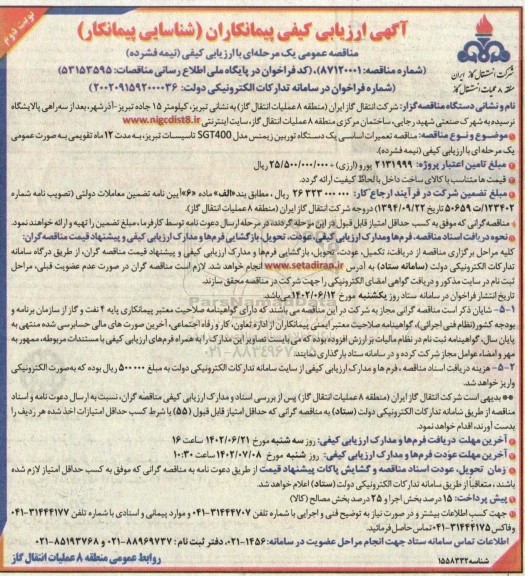 نوبت دوم
آگهی ارزیابی کیفی پیمانکاران (شناسایی پیمانکار)
مناقصه عمومی یک مرحله‌ای با ارزیابی کیفی (نیمه فشرده)
(شماره مناقصه: ۸۷۱۲۰۰۰۱)، (کد فراخوان در پایگاه ملی اطلاع رسانی مناقصات: ۵۳۱۵۳۵۹۵)
(شماره فراخوان در سامانه تدارکات الکترونیکی دولت: ۲۰۰۲۰۹۱۵۹۲۰۰۰۰۳۶)
شرکت انتقال گاز ایران
منطقه ۸ عملیات انتقال گاز
نام و نشانی دستگاه مناقصه گزار: شرکت انتقال گاز ایران (منطقه ۸ عملیات انتقال گاز) به نشانی تبریز، کیلومتر ۱۵ جاده تبریز-آذرشهر، بعد از سه راهی پالایشگاه
نرسیده به شهرک صنعتی شهید رجایی، ساختمان مرکزی منطقه ۸ عملیات انتقال گاز، سایت اینترنتی www.nigcdist8.ir
موضوع و نوع مناقصه: مناقصه تعمیرات اساسی یک دستگاه توربین زیمنس مدل SGT400 تاسیسات تبریز، به مدت ۱۲ ماه تقویمی به صورت عمومی
یک مرحله ای با ارزیابی کیفی (نیمه فشرده).
مبلغ تامین اعتبار پروژه: ۲۱۳۱۹۹۹ یورو (ارزی) + ۲۵/۵۰۰/۰۰۰/۰۰۰ ریال
قیمت ها متناسب با کالای ساخت داخل با لحاظ کیفیت ارائه گردد.
مبلغ تضمین شرکت در فرآیند ارجاع کار: ۲۶ ۳۲۳ ۰۰۰ ۰۰۰ ریال، مطابق بند «الف» ماده «۶» آیین نامه تضمین معاملات دولتی (تصویب نامه شماره
۱۲۳۴۰۲/ت ۵۰۶۵۹ تاریخ ۱۳۹۴/۰۹/۲۲) در وجه شرکت انتقال گاز ایران (منطقه ۸ عملیات انتقال گاز).
مناقصه گرانی که موفق به کسب حداقل امتیاز قابل قبول در این مرحله گردند، در مرحله ارسال دعوت نامه توسط کارفرما، مبلغ تضمین را تهیه و ارائه خواهند نمود.
نحوه دریافت اسناد مناقصه، فرم‌ها و مدارک ارزیابی کیفی، عودت، تحویل، بازگشایی فرم‌ها و مدارک ارزیابی کیفی و پیشنهاد قیمت مناقصه گران:
کلیه مراحل برگزاری مناقصه از دریافت، تکمیل، عودت، تحویل، بازگشایی فرم‌ها و مدارک ارزیابی کیفی و پیشنهاد قیمت مناقصه گران، از طریق درگاه سامانه
تدارکات الکترونیکی دولت (سامانه ستاد) به آدرس www.setadiran.ir انجام خواهد شد. لازم است مناقصه گران در صورت عدم عضویت قبلی، مراحل
ثبت نام در سایت مذکور و دریافت گواهی امضای الکترونیکی را جهت شرکت در مناقصه محقق سازند.
تاریخ انتشار فراخوان در سامانه ستاد روز یکشنبه مورخ ۱۴۰۲/۰۶/۱۲ می باشد.
۵-۱- شایان ذکر است مناقصه گرانی مجاز به شرکت در این مناقصه می باشند که دارای گواهینامه صلاحیت معتبر پیمانکاری پایه ۴ نفت و گاز از سازمان برنامه و
بودجه کشور (نظام فنی اجرائی)، گواهینامه صلاحیت معتبر ایمنی پیمانکاران از اداره تعاون، کار و رفاه اجتماعی، آخرین صورت های مالی حسابرسی شده منتهی به
پایان سال، گواهینامه ثبت نام در نظام مالیات بر ارزش افزوده بوده که می بایست تصاویر این مدارک را به همراه فرم‌های ارزیابی کیفی با مستندات مربوطه، ممهور به
مهر و امضاء عوامل مجاز شرکت کرده و در سامانه ستاد بارگذاری نمایند.
۵-۲- هزینه دریافت اسناد مناقصه، فرم ها و مدارک ارزیابی کیفی از سایت سامانه تدارکات الکترونیکی دولت به مبلغ ۵۰۰۰۰۰ ریال بوده که به صورت الکترونیکی
واریز خواهد شد.
** بدیهی است شرکت انتقال گاز ایران (منطقه ۸ عملیات انتقال گاز) پس از بررسی اسناد و مدارک ارزیابی کیفی مناقصه گران، نسبت به ارسال دعوت نامه و اسناد
مناقصه از طریق سامانه تدارکات الکترونیکی دولت (ستاد) به مناقصه گرانی که حداقل امتیاز قابل قبول (۵۵) با شرط کسب حداقل امتیازات اخذ شده هر ردیف را
بدست آورند، اقدام خواهد نمود.
آخرین مهلت دریافت فرم‌ها و مدارک ارزیابی کیفی: روز سه شنبه مورخ ۱۴۰۲/۰۶/۲۱ ساعت ۱۶
آخرین مهلت عودت فرم‌ها و مدارک ارزیابی کیفی: روز شنبه مورخ ۱۴۰۲/۰۷/۰۸ ساعت ۱۰:۳۰
زمان تحویل، عودت اسناد مناقصه و گشایش پاکات پیشنهاد قیمت از طریق دعوت نامه به مناقصه گرانی که موفق به کسب حداقل امتیاز لازم شده
باشند، متعاقباً از طریق سامانه تدارکات الکترونیکی دولت (ستاد) اعلام خواهد شد.
پیش پرداخت: ۱۵ درصد بخش اجرا و ۲۵ درصد بخش مصالح (کالا)
جهت کسب اطلاعات بیشتر و در صورت نیاز به توضیح فنی و اجرایی با شماره تلفن ۳۱۴۴۴۷۰۷-۰۴۱ و موارد پیمانی و اسنادی با شماره تلفن ۳۱۴۴۴۱۷۷-۰۴۱
وفاکس ۳۱۴۴۴۱۷۵-۰۴۱ تماس حاصل فرمائید.
اطلاعات تماس سامانه ستاد جهت انجام مراحل عضویت در سامانه: ۱۴۵۶-۰۲۱، دفتر ثبت نام: ۸۸۹۶۹۷۳۷-۰۲۱ و ۸۵۱۹۳۷۶۸-۰۲۱
شناسه ۱۵۵۸۳۳۲
روابط عمومی منطقه ۸ عملیات انتقال گاز